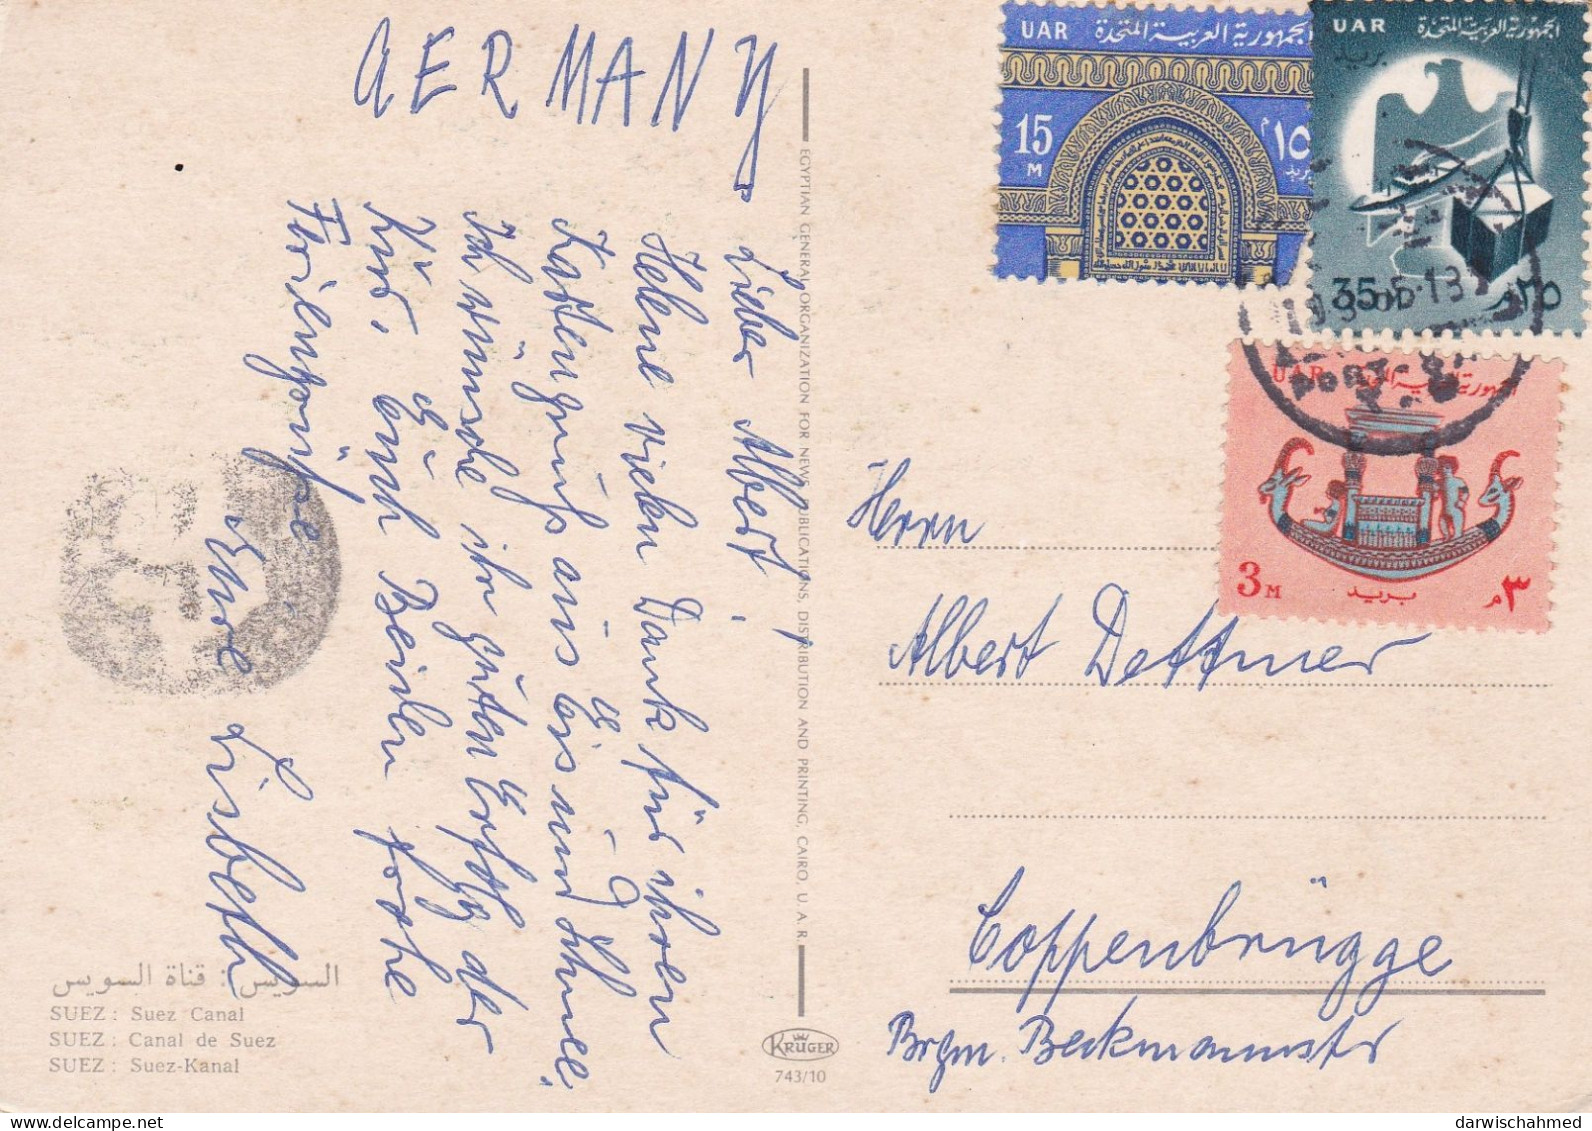 GERMANY
Lieber Albert!
Helene vielen Dank für ihren
Kartengruß aus Eis und Schnee.
Ich wünsche ihr guten Erfolg der
Kur, Euch Beiden frohe
Eure Lisbeth
السويس : قناة السويس
SUEZ : Suez Canal
SUEZ : Canal de Suez
SUEZ : Suez-Kanal
EGYPTIAN GENERAL ORGANIZATION FOR NEWS, PUBLICATIONS, DISTRIBUTION AND PRINTING, CAIRO, U. A. R.
KRÜGER
743/10
UAR الجمهورية العربية المتحدة
15 M
١٥ م
بريد
UAR الجمهورية العربية المتحدة
بريد
35
٣٥
UAR
3 M بريد ٣ م
Herrn
Albert Dettmer
Coppenbrügge
Brgm. Beckmannstr
darwischahmed